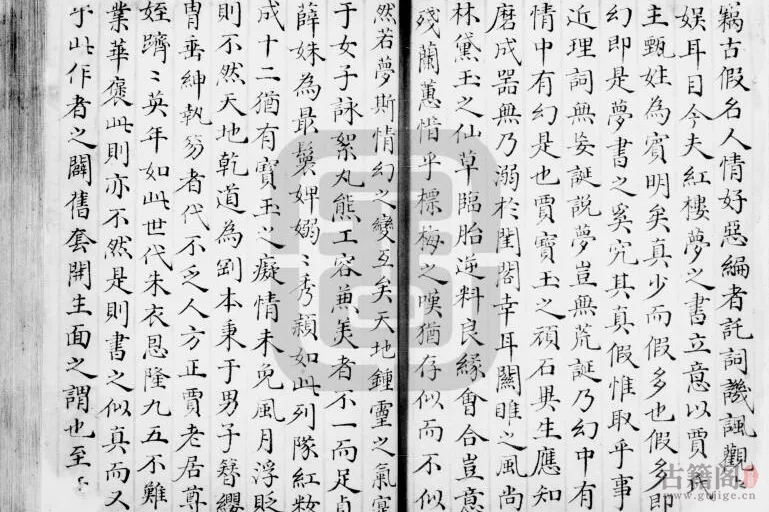 竊古假名人情好惡編者託詞譏諷觀之
娛耳目今夫紅樓夢之書立意以賈氏
主甄姓為賓明矣真少而假多也假多即
幻即是夢書之奚究其真假惟取乎事
近理詞無妄誕說夢豈無荒誕乃幻中有
情中有幻是也賈寶玉之頑石異生應知
磨成器無乃溺於閨閣幸耳關睢之風尚
林黛玉之仙草臨胎逆料良緣會合豈意
殘蘭蕙惜乎摽梅之嘆猶存似而不似
然若夢斯情幻之變互矣天地鍾靈之氣寔
于女子詠絮丸熊工容兼美者不一而足貞
薛姝為最鬟婢嫋〻秀穎如此列隊紅粧
成十二猶有寶玉之癡情未免風月浮貶
則不然天地乾道為剛本秉于男子簪纓
胄垂紳執笏者代不乏人方正賈老居尊
姪躋〻英年如此世代朱衣恩隆九五不難
業華褒此則亦不然是則書之似真而又
乎此作者之闢舊套開生面之謂也至〻
古籍阁
www.gujige.cn